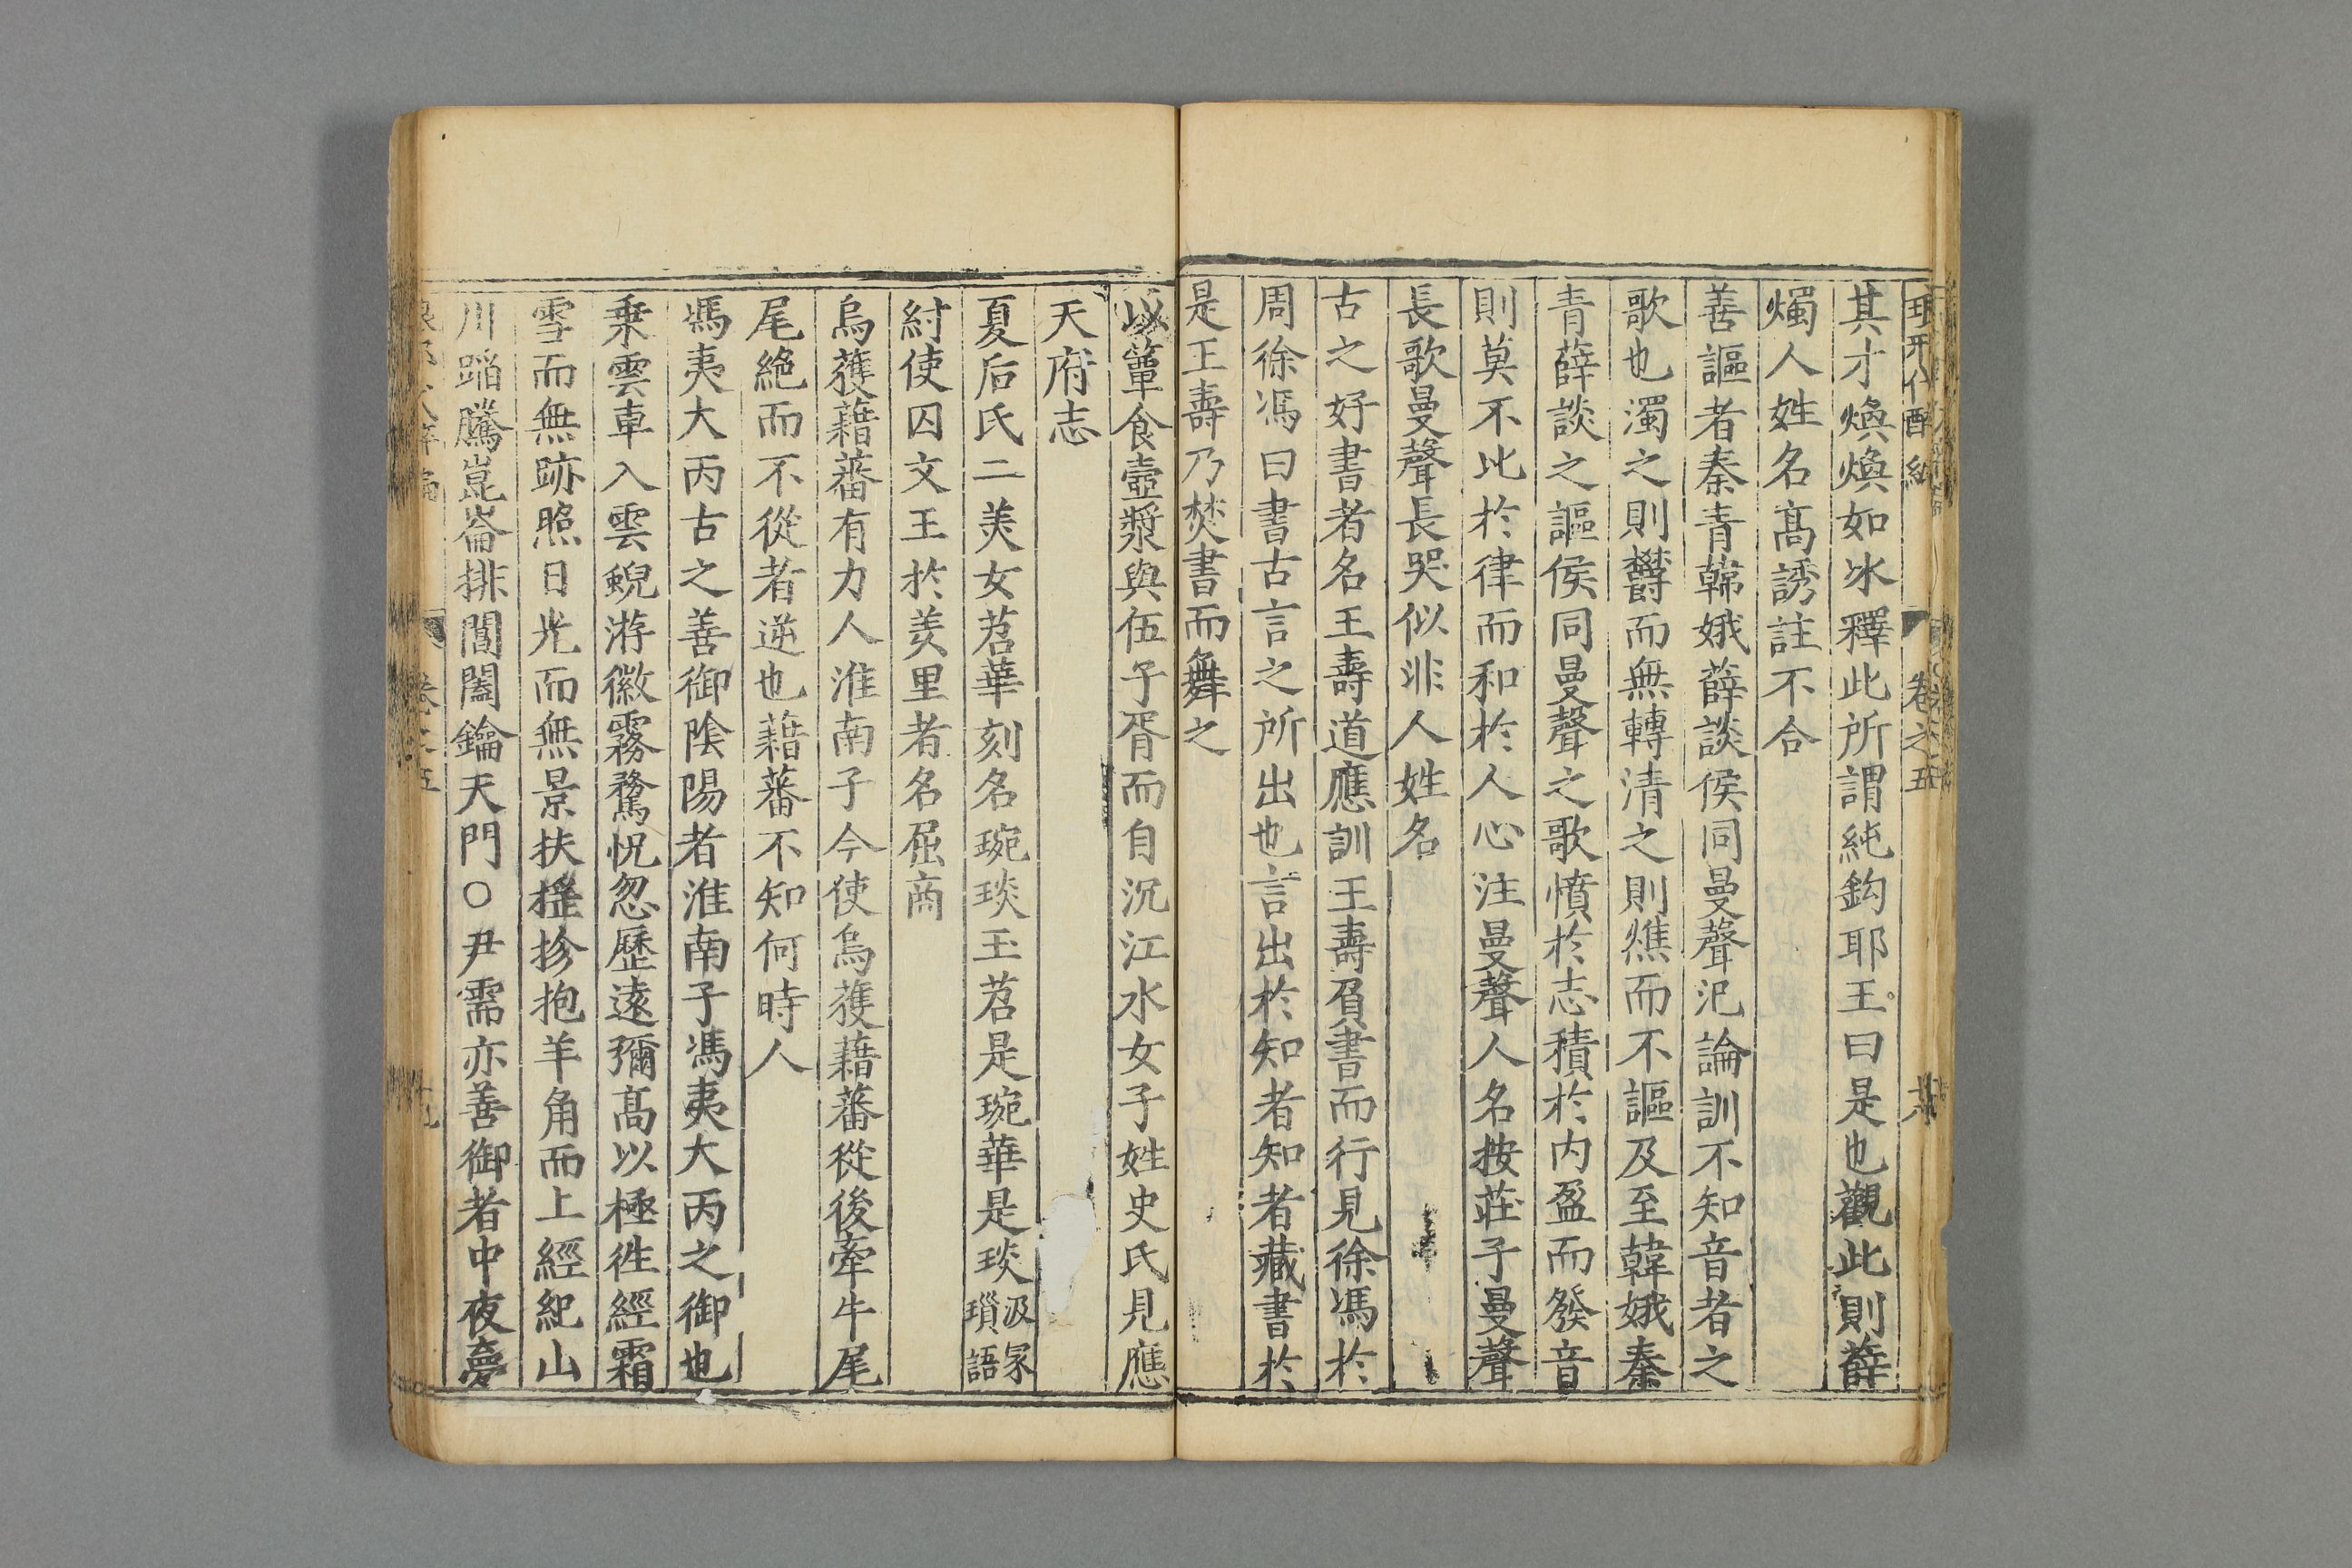 卷之五
其才煥煥如冰釋此所謂純鈎耶王曰是也觀此則薛
燭人姓名髙誘註不合
善謳者秦青韓娥薛談侯同曼聲氾論訓不知音者之
歌也濁之則欝而無轉清之則燋而不謳及至韓娥秦
青薛談之謳侯同曼聲之歌憤於志積於内盈而發音
則莫不比於律而和於人心注曼聲人名按莊子曼聲
長歌曼聲長哭似非人姓名
古之好書者名王壽道應訓王壽負書而行見徐馮於
周徐馮曰書古言之所出也言出於知者知者藏書於
是王壽乃焚書而舞之
以簞食壺漿與伍子胥而自沉江水女子姓史氏見應
天府志
夏后氏二美女苕華刻名琬琰玉苕是琬華是琰汲冢瑣語
紂使囚文王於羑里者名屈商
烏獲藉蕃有力人淮南子今使烏獲藉蕃從後牽牛尾
尾絶而不從者逆也藉蕃不知何時人
馮夷大丙古之善御陰陽者淮南子馮夷大丙之御也
乗雲車入雲蜺游微霧騖怳忽歷遠彌髙以極徃經霜
雪而無跡照日光而無景扶搖抮抱羊角而上經紀山
川蹈騰崑崙排閶闔鑰天門○尹需亦善御者中夜夢